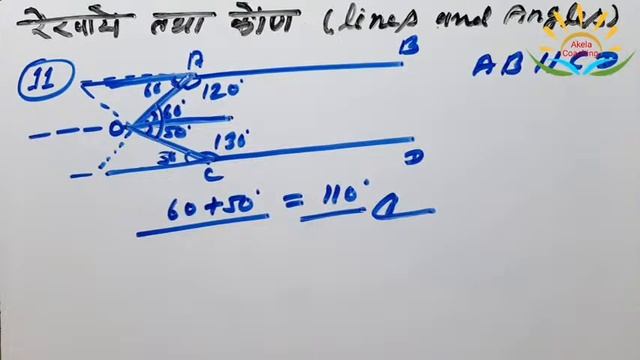 रेखायें तथा कोण (lines and Angles)
Akela
Coaching
11
A
B
AB || CD
60
120°
O
60°
50°
130°
50
C
D
60+50° = 110°